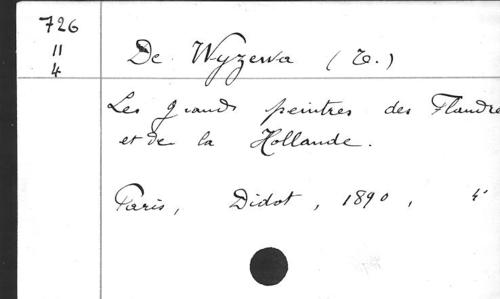 726
11
4
De Wyzewa (T.)
Les grands peintres des Flandre
et de la Hollande.
Paris, Didot, 1890, 4°